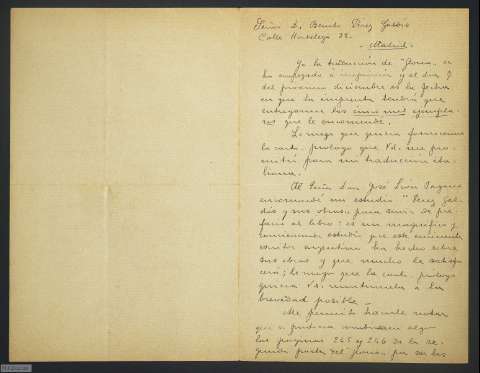 Señor D. Benito Pérez Galdós
Calle Hortaleza 32.
- Madrid -
Ya la traducción de "Gloria" se
ha empezado a imprimir y el día 7
del próximo diciembre es la fecha
en que la imprenta tendrá que
entregarme los cinco mil ejempla-
res que le encomendé.
Le ruego que quiera
la carta-prólogo que Vd. me pro-
metió para mi traducción ita-
liana.
Al Señor Don José León Pagano
encomendé un estudio "Pérez Gal-
dós y sus obras" para servir de pre-
facio al libro: es un magnífico y
estudio que este eminente
escritor argentino ha hecho sobre
sus obras y que mucho le satisfa-
cerá; le ruego que la carta-prólogo
quiera Vd. a la
brevedad posible -
Me permito hacerle notar
que se podría algo
las páginas 245 y 246 de la se-
gunda parte del por ser las